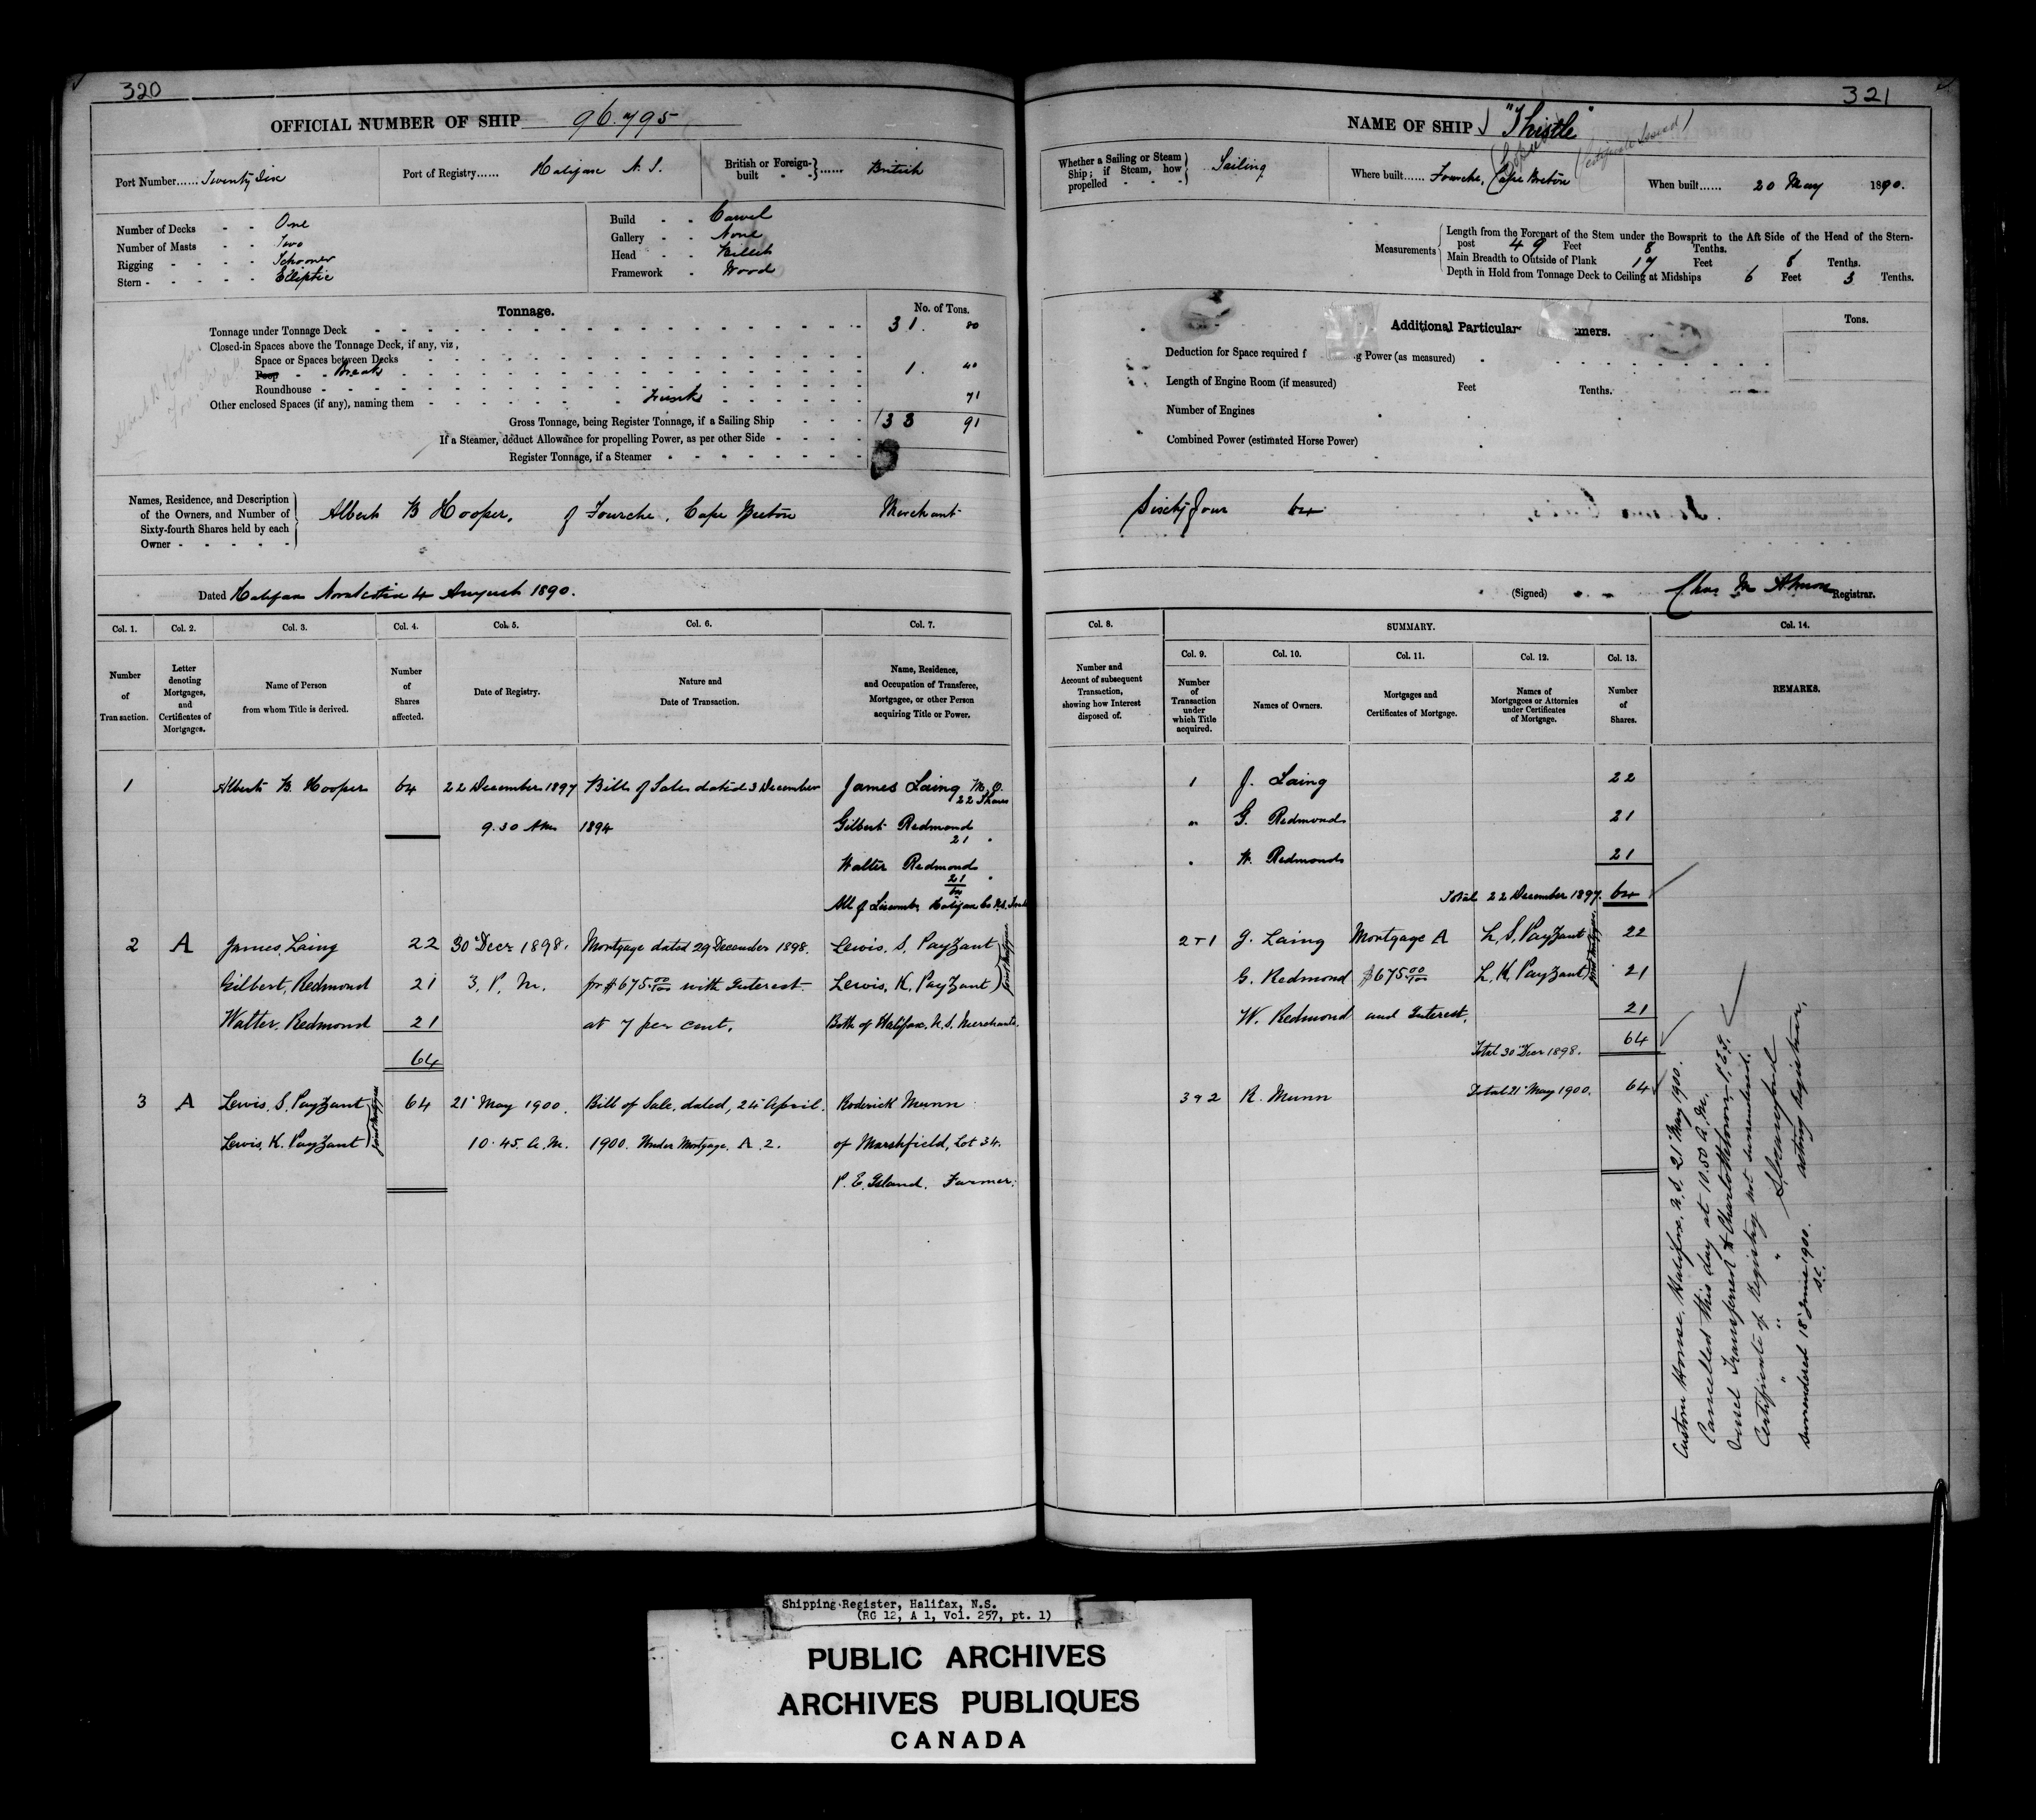 320
OFFICIAL NUMBER OF SHIP 96.795
Port Number...... Twenty Six
Port of Registry...... Halifax N. S.
British or Foreign-built - - } ...... British
Number of Decks - - One
Number of Masts - - Two
Rigging - - - - Schooner
Stern - - - - - Elliptic
Build - - Carvel
Gallery - - None
Head - - Billet
Framework - Wood
Tonnage.
No. of Tons.
Tonnage under Tonnage Deck 31. 80
Closed-in Spaces above the Tonnage Deck, if any, viz,
Space or Spaces between Decks
Poop - - Break 1. 40
Roundhouse
Other enclosed Spaces (if any), naming them Trunk 71
Gross Tonnage, being Register Tonnage, if a Sailing Ship 33 91
If a Steamer, deduct Allowance for propelling Power, as per other Side
Register Tonnage, if a Steamer
Names, Residence, and Description
of the Owners, and Number of
Sixty-fourth Shares held by each
Owner
Albert B Hooper, of Fourche, Cape Breton Merchant
Dated Halifax Nova Scotia 4 August 1890.
Col. 1. Col. 2. Col. 3. Col. 4. Col. 5. Col. 6. Col. 7.
Number of Transaction.
Letter denoting Mortgages, and Certificates of Mortgages.
Name of Person from whom Title is derived.
Number of Shares affected.
Date of Registry.
Nature and Date of Transaction.
Name, Residence, and Occupation of Transferee, Mortgagee, or other Person acquiring Title or Power.
1 Albert B. Hooper 64 22 December 1897 Bill of Sale dated 3 December James Laing M.D.
22 Shares
9.30 Am 1894 Gilbert Redmond
21 "
Walter Redmond
21 "
64
All of Liscomb, Halifax Co N.S.
2 A James, Laing 22 30 Decr 1898. Mortgage dated 29 December 1898. Lewis, S, Payzant
Gilbert, Redmond 21 3, P. M. for $675 00/100 with Interest Lewis, K, Payzant) Joint Mortgagees
Walter, Redmond 21 at 7 per cent. Both of Halifax, N.S. Merchants.
64
3 A Lewis, S. Payzant 64 21 May 1900. Bill of Sale, dated, 24 April Roderick Munn
Lewis, K. Payzant) Joint Mortgagees 10.45. A.M. 1900. Under Mortgage, A. 2. of Marshfield, Lot 34.
P. E. Island. Farmer.
321
NAME OF SHIP "Thistle"
Certificate Issued
Whether a Sailing or Steam
Ship; if Steam, how
propelled - - -
Sailing
Where built...... Fourche, Cape Breton
When built...... 20 May 1890.
Measurements
Length from the Forepart of the Stem under the Bowsprit to the Aft Side of the Head of the Stern-
post 49 Feet 8 Tenths.
Main Breadth to Outside of Plank 17 Feet 6 Tenths.
Depth in Hold from Tonnage Deck to Ceiling at Midships 6 Feet 3 Tenths.
Additional Particular mers.
Tons.
Deduction for Space required f g Power (as measured)
Length of Engine Room (if measured) Feet Tenths.
Number of Engines
Combined Power (estimated Horse Power)
Sixty four 64
(Signed) Chas M Almon Registrar.
Col. 8. SUMMARY. Col. 14.
Col. 9. Col. 10. Col. 11. Col. 12. Col. 13.
Number and Account of subsequent Transaction, showing how Interest disposed of.
Number of Transaction under which Title acquired.
Names of Owners.
Mortgages and Certificates of Mortgage.
Names of Mortgagees or Attornies under Certificates of Mortgage.
Number of Shares.
REMARKS.
1 J. Laing 22
" G. Redmond 21
" W. Redmond 21
Total 22 December 1897. 64
2+1 J. Laing Mortgage A L, S, Payzant 22
G. Redmond $675 00/100 L, K, Payzant) Joint Mortgagees 21
W. Redmond and Interest. 21
Total 30 Decr 1898. 64
3 & 2 R. Munn Total 21 May 1900. 64
Custom House, Halifax, N.S. 21 May 1900.
Cancelled this day at 10.50 A.M.
Vessel Transferred to Charlottetown P.E.I.
Certificate of Registry not surrendered.
Acting Registrar.
" " "
surrendered 18 June 1900.
Shipping Register, Halifax, N.S.
(RG 12, A 1, Vol. 257, pt. 1)
PUBLIC ARCHIVES
ARCHIVES PUBLIQUES
CANADA